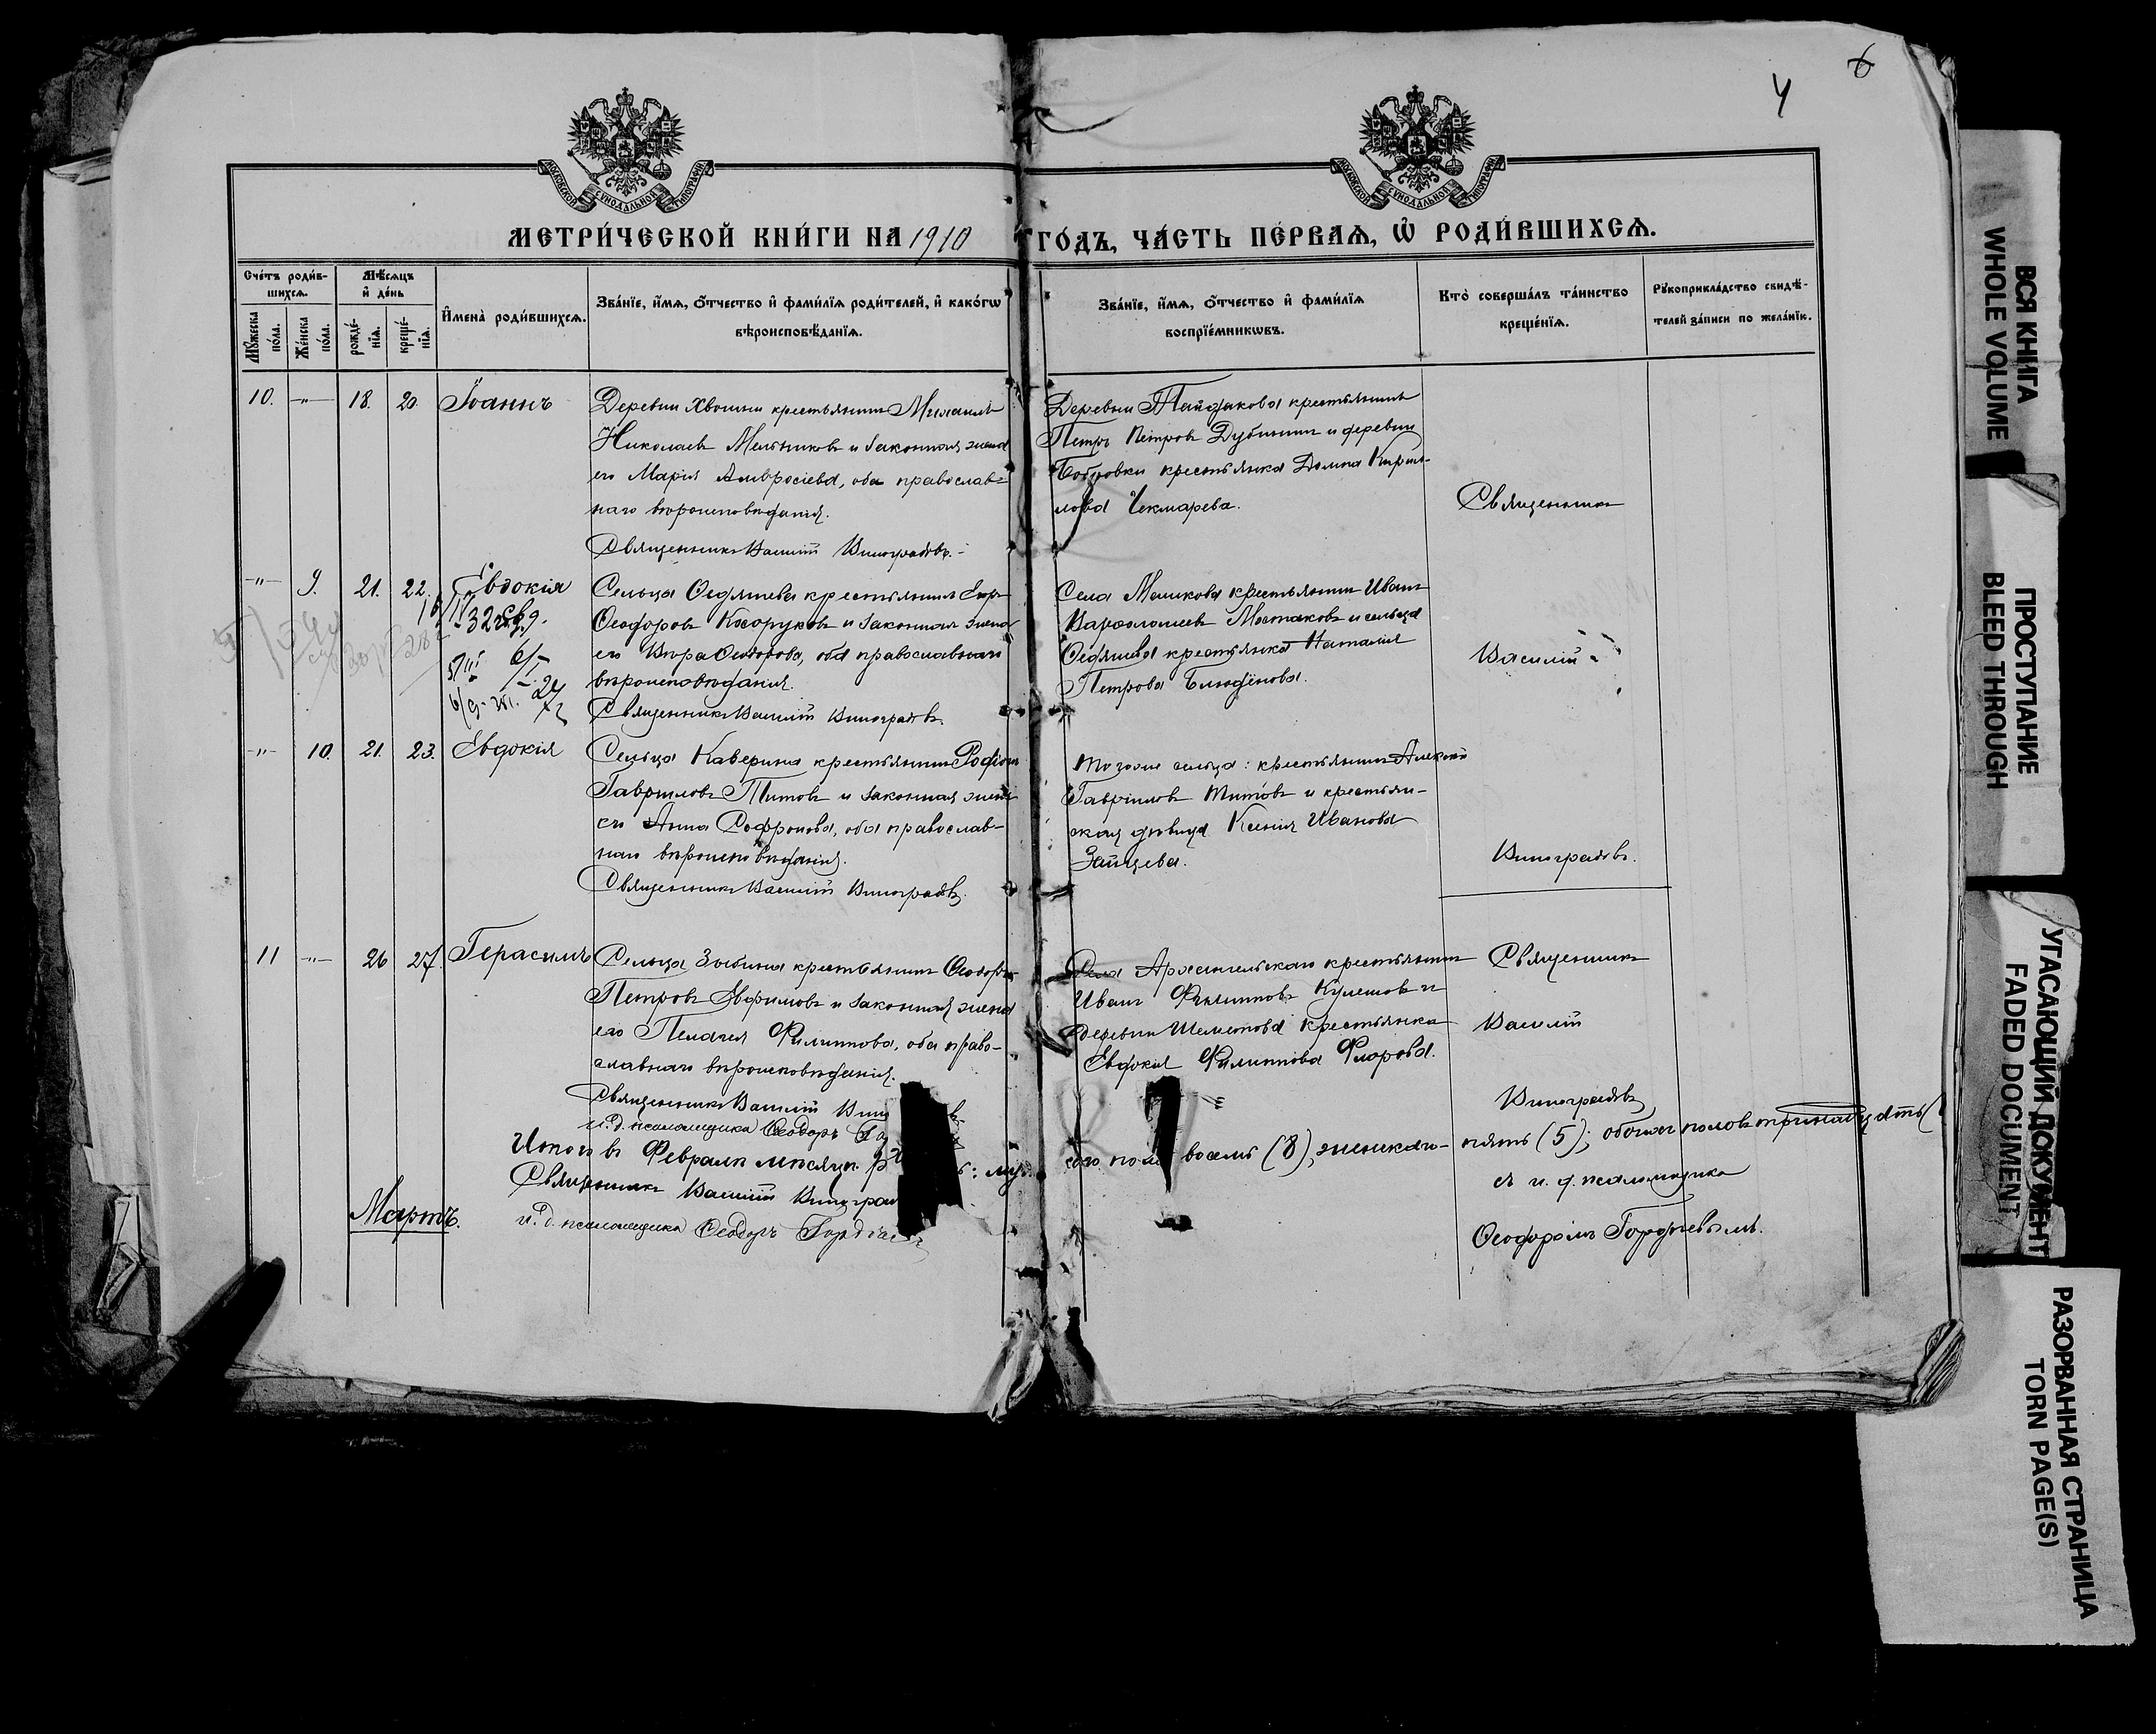 6
4
МОСКОВСКОЙ СѴНОДАЛЬНОЙ ТИПОГРАФІИ
МОСКОВСКОЙ СѴНОДАЛЬНОЙ ТИПОГРАФІИ
МЕТРИ́ЧЕСКОЙ КНИ́ГИ НА 1910 ГО́ДЪ, ЧА́СТЬ ПЕ́РВАѦ, Ѽ РОДИ́ВШИХСѦ.
Сче́тъ роди́в-
шихсѧ.
Мꙋ́жеска по́ла.
Же́нска по́ла.
Мѣ́сѧцъ и҆ де́нь
рожде́-нїѧ.
креще́-нїѧ.
И҆мена̀ роди́вшихсѧ.
Зва́нїе, и҆́мѧ, ѻ҆́тчество и҆ фами́лїѧ роди́телей, и҆ како́гѡ
вѣроисповѣ́данїѧ.
Зва́нїе, и҆́мѧ, ѻ҆́тчество и҆ фами́лїѧ
воспрїе́мникѡвъ.
Кто̀ соверша́лъ та́инство
креще́нїѧ.
Рꙋкоприкла́дство свидѣ́-
телей за́писи по жела́нїю.
10. -"- 18. 20. Іоаннъ
Деревни Хвощни крестьянинъ Михаилъ
Николаевъ Мельниковъ и законная жена
его Марія Амвросіева, оба православ-
наго вѣроисповѣданія.
Священникъ Василій Виноградовъ.
Деревни Тайдакова крестьянинъ
Петръ Петровъ Дубининъ и деревни
Бобровки крестьянка Домна Кирил-
лова Чекмарева.
Священникъ
-"- 9. 21. 22. Евдокія
Сельца крестьянинъ
Ѳеодоровъ Косоруковъ и законная жена
его Вѣра Ѳеодорова, оба православнаго
вѣроисповѣданія.
Священникъ Василій Виноградовъ.
Села крестьянинъ Иванъ
Варѳоломеевъ и сельца
крестьянка Наталія
Петрова
Василій
-"- 10. 21. 23. Евдокія
Сельца Каверина крестьянинъ Родіонъ
Гавриловъ Титовъ и законная жена
его Анна Софронова, оба православ-
наго вѣроисповѣданія.
Священникъ Василій Виноградовъ.
того же сельца: крестьянинъ Алексѣй
Гавріиловъ Титовъ и крестьян-
ская дѣвица Ксенія Иванова
Зайцева.
Виноградовъ.
11 -"- 26 27. Герасимъ
Сельца Зыбина крестьянинъ Ѳеодоръ
Петровъ Ефимовъ и законная жена
его Пелагея Филиппова, оба право-
славнаго вѣроисповѣданія.
Священникъ Василій
и.д. псаломщика Ѳеодоръ
Села Архангельскаго крестьянинъ
Иванъ Филипповъ Кулешовъ и
деревни Шеметова крестьянка
Евдокія Филиппова Фролова.
Священникъ
Василій
Виноградовъ
Итого въ Февралѣ мѣсяцѣ
ского пола восемь (8), женскаго- пять (5); обоихъ половъ тринадцать
Священникъ Василій
съ и. д. псаломщика
и.д. псаломщика Ѳеодоръ
Ѳеодоромъ Гордѣевымъ.
Мартъ.
ВСЯ КНИГА
WHOLE VOLUME
ПРОСТУПАНИЕ
BLEED THROUGH
УГАСАЮЩИЙ ДОКУМЕНТ
FADED DOCUMENT
РАЗОРВАННАЯ СТРАНИЦА
TORN PAGE(S)